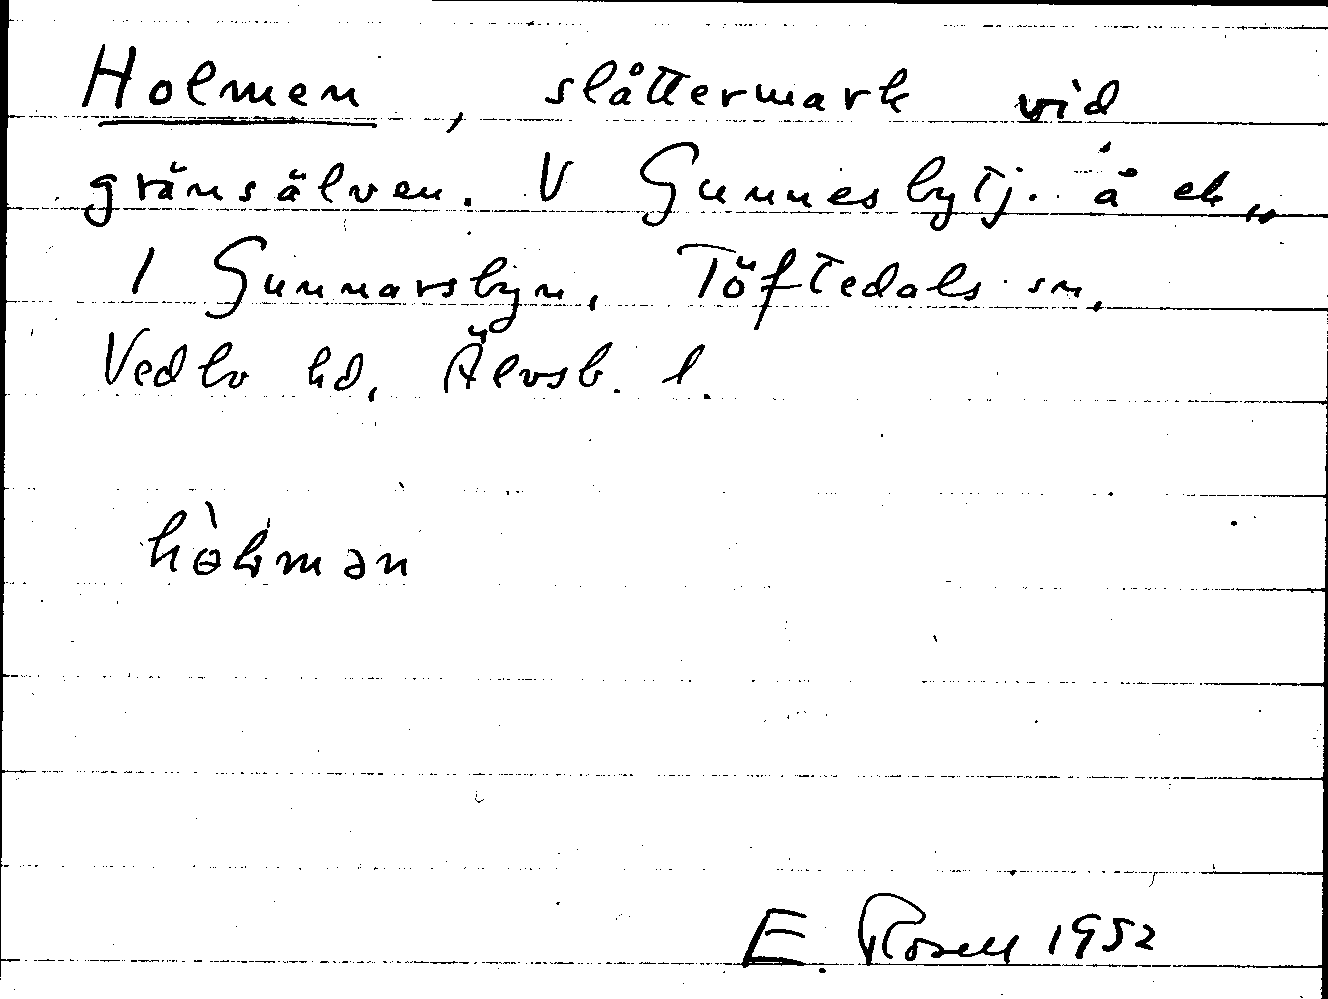 Holmen, slåttermark vid
gränsälven. V Gunnesbytj. å ek„
1 Gunnarsbyn, Töftedals sn,
Vedbo hd, Älvsb. l.
E. Rosell 1952